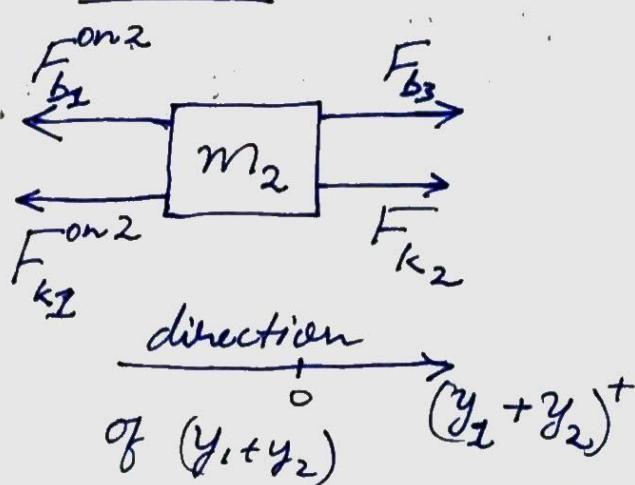 F_{b1}^{on 2} F_{b3}
m_2
F_{k1}^{on 2} F_{k2}
direction
0
of (y_1+y_2) (y_1+y_2)^+